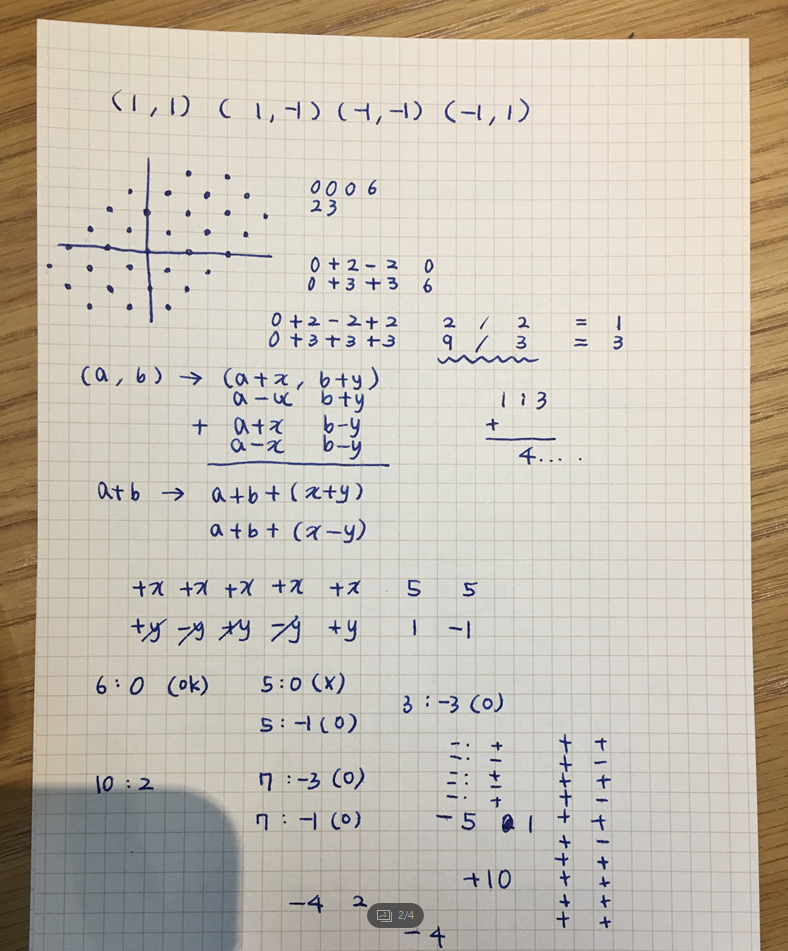 (1, 1) (1, -1) (-1, -1) (-1, 1)
0 0 0 6
2 3
0 + 2 - 2 0
0 + 3 + 3 6
0 + 2 - 2 + 2 2 / 2 = 1
0 + 3 + 3 + 3 9 / 3 = 3
(a, b) → (a+x, b+y)
a-x b+y
+ a+x b-y
a-x b-y
1 1 3
+
4....
a+b → a+b+(x+y)
a+b+(x-y)
+x +x +x +x +x 5 5
+y -y +y -y +y 1 -1
6:0 (ok) 5:0 (x)
3:-3 (0)
5:-1 (0)
10:2 7:-3 (0)
7:-1 (0)
-: +
-: -
=: +
-: -
-: +
-5 1
+ +
+ -
+ +
+ -
+ +
+ -
+ +
+ +
+ +
+ +
+10
-4 2
2/4
-4